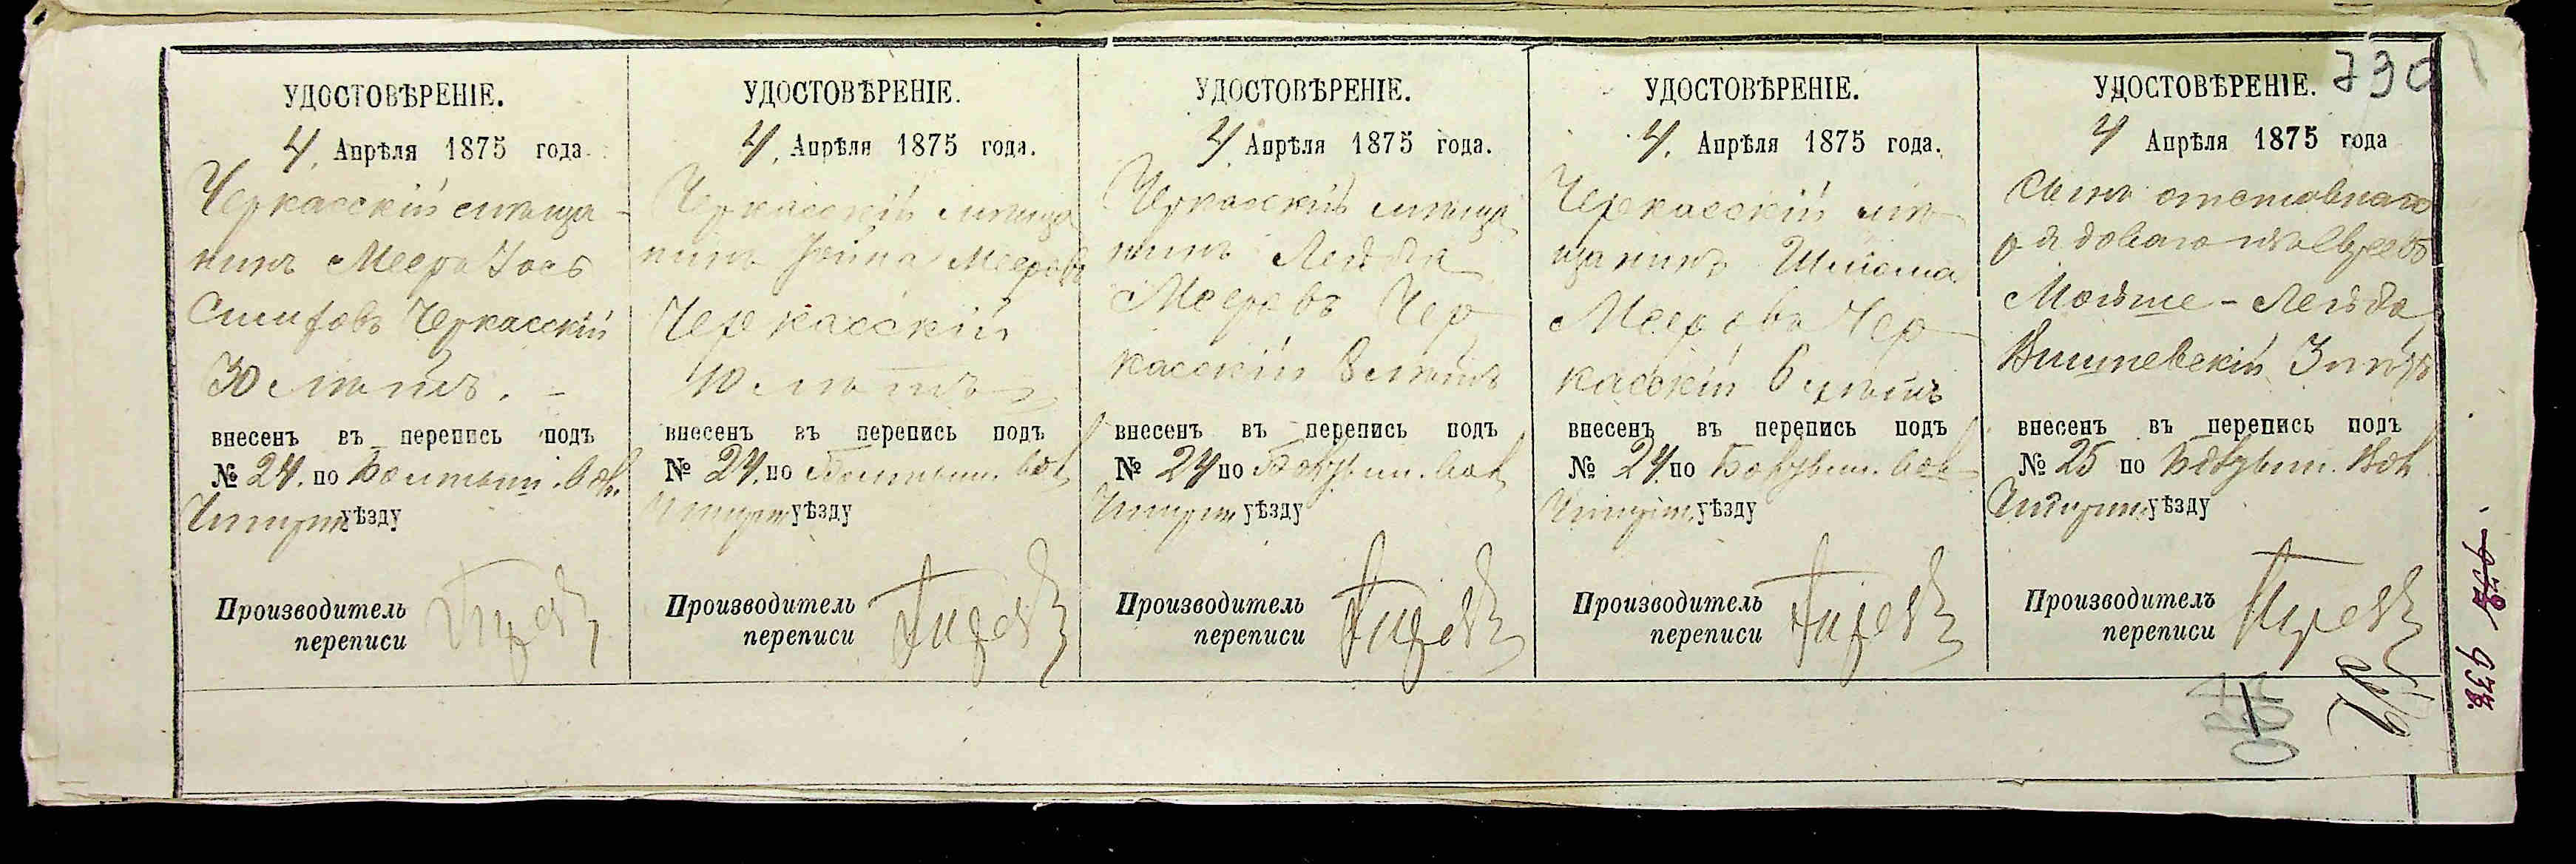 УДОСТОВѢРЕНІЕ.
4. Апрѣля 1875 года.
Черкасскій мѣща-
нинъ Мееръ Іось
Сима Черкасскій
30 лѣтъ. -
внесенъ въ перепись подъ
№ 24. по Болтыш. вол.
Чигирин уѣзду
Производитель
переписи
УДОСТОВѢРЕНІЕ.
4. Апрѣля 1875 года.
Черкасскій мѣща
нинъ Мееровъ
Черкасскій
10 лѣтъ
внесенъ въ перепись подъ
№ 24. по Болтыш. вол
Чигирин уѣзду
Производитель
переписи
УДОСТОВѢРЕНІЕ.
4. Апрѣля 1875 года.
Черкасскій мѣща
нинъ Лейба
Мееровъ Чер
касскій 8 лѣтъ
внесенъ въ перепись подъ
№ 24 по вол
Чигирин уѣзду
Производитель
переписи
УДОСТОВѢРЕНІЕ.
4. Апрѣля 1875 года.
Черкасскій мѣ
щанинъ
Мееровъ Чер
касскій 6 лѣтъ
внесенъ въ перепись подъ
№ 24. по вол
Чигирин. уѣзду
Производитель
переписи
УДОСТОВѢРЕНІЕ.
730
4 Апрѣля 1875 года
Сынъ отставнаго
рядоваго изъ Евреевъ
Мойше-Лейба
Вишневскій 3 лѣтъ
внесенъ въ перепись подъ
№ 25 по вол
Чигирин уѣзду
Производитель
переписи
938.